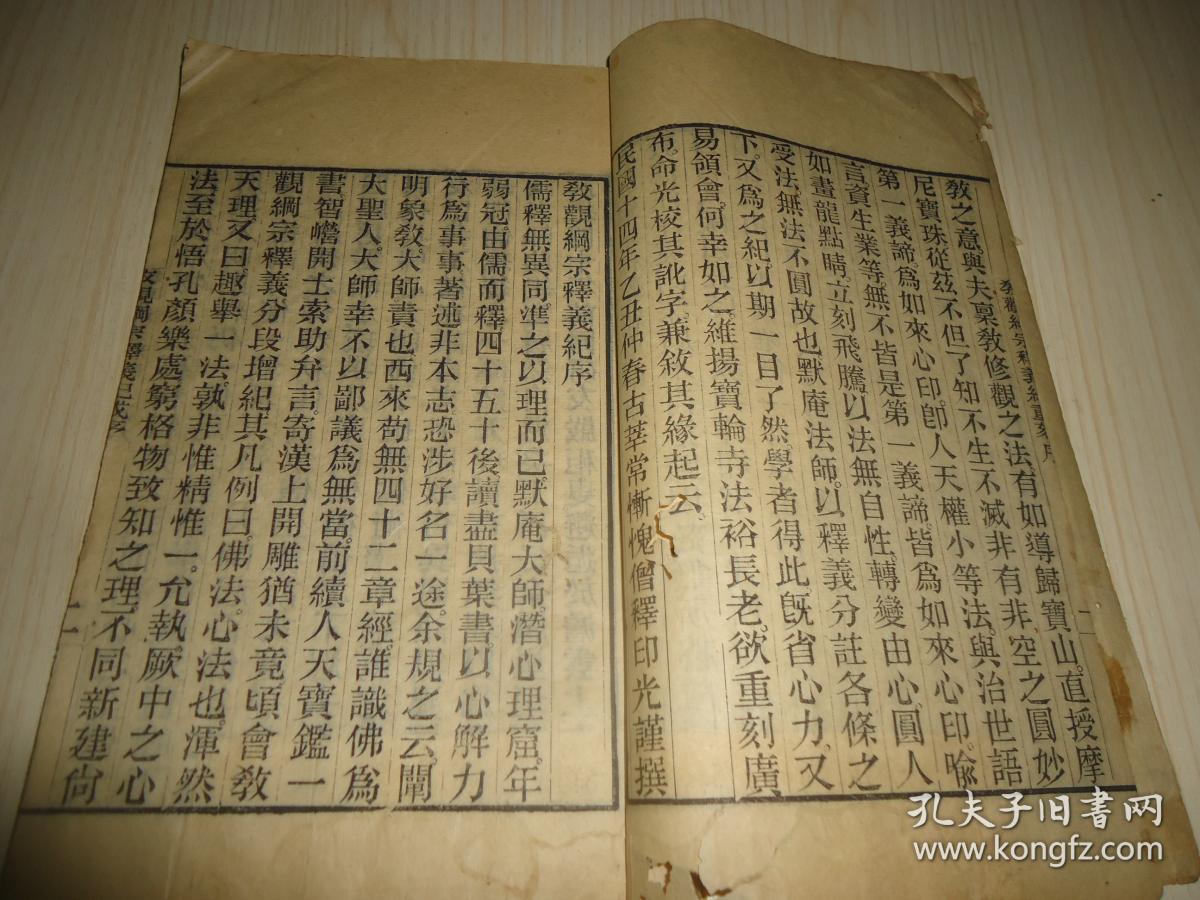 教之意與夫稟教修觀之法有如導歸寶山直授摩
尼寶珠從茲不但了知不生不滅非有非空之圓妙
第一義諦為如來心印卽人天權小等法與治世語
言資生業等無不皆是第一義諦皆為如來心印喩
如畫龍點睛立刻飛騰以法無自性轉變由心圓人
受法無法不圓故也默庵法師以釋義分註各條之
下又為之紀以期一目了然學者得此旣省心力又
易領會何幸如之維揚寶輪寺法裕長老欲重刻廣
布命光校其訛字兼敘其緣起云
民國十四年乙丑仲春古莘常慚愧僧釋印光謹撰
教觀綱宗釋義紀序
儒釋無異同準之以理而已默庵大師潛心理窟年
弱冠由儒而釋四十五十後讀盡貝葉書以心解力
行為事事著述非本志恐涉好名一途余規之云闡
明象教大師責也西來苟無四十二章經誰識佛為
大聖人大師幸不以鄙議為無當前續人天寶鑑一
書智嶦開士索助弁言寄漢上開雕猶未竟頃會教
觀綱宗釋義分段增紀其凡例曰佛法心法也渾然
天理又曰趣舉一法孰非惟精惟一允執厥中之心
法至於悟孔顏樂處窮格物致知之理不同新建尙
教觀綱宗釋義紀序
二
孔夫子旧书网
www.kongfz.com